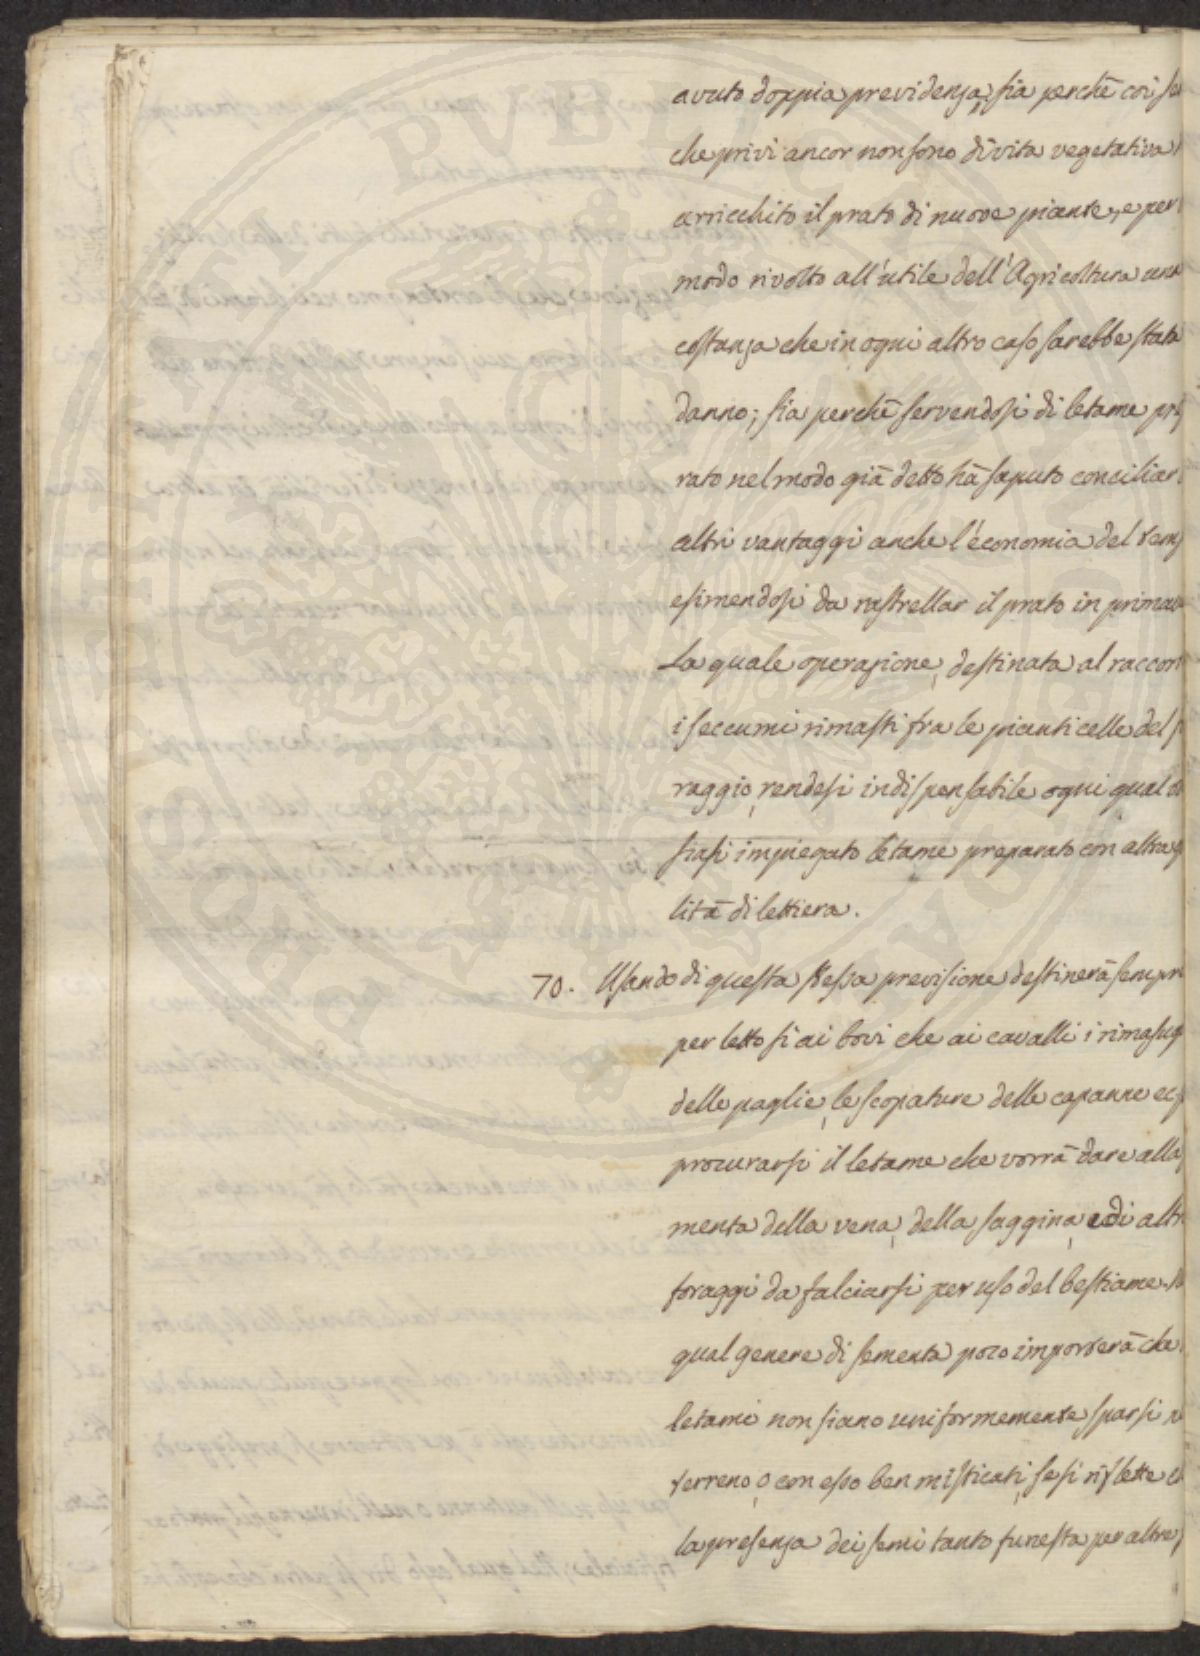 avuto doppia previdenza, sia perchè coi se
che privi ancor non sono di vita vegetativa
arricchito il prato di nuove piante, e per
modo rivolto all'utile dell'Agricoltura una
costanza che in ogni altro caso sarebbe stata
danno; sia perchè servendosi di letame
rato nel modo già detto hà saputo conciliar
altri vantaggi anche l'economia del
esimendosi da rastrellar il prato in
La quale operazione, destinata al
i seccumi rimasti fra le pianticelle del
raggio, rendesi indispensabile ogni qual
siasi impiegato letame preparato con altra
lità di lettiera.
70. Usando di questa stessa previsione destinerà sempr
per letto sì ai bovi che ai cavalli i rimasug
delle paglie, le scopature delle capanne ec
procurarsi il letame che vorrà dare alla
menta della vena, della saggina, e di altr
foraggi da falciarsi per uso del bestiame.
qual genere di sementa poco importerà che
letami non siano uniformemente sparsi
terreno, o con esso ben misticati, se si riflette
la presenza dei semi tanto funesta per altre
PUBLICA